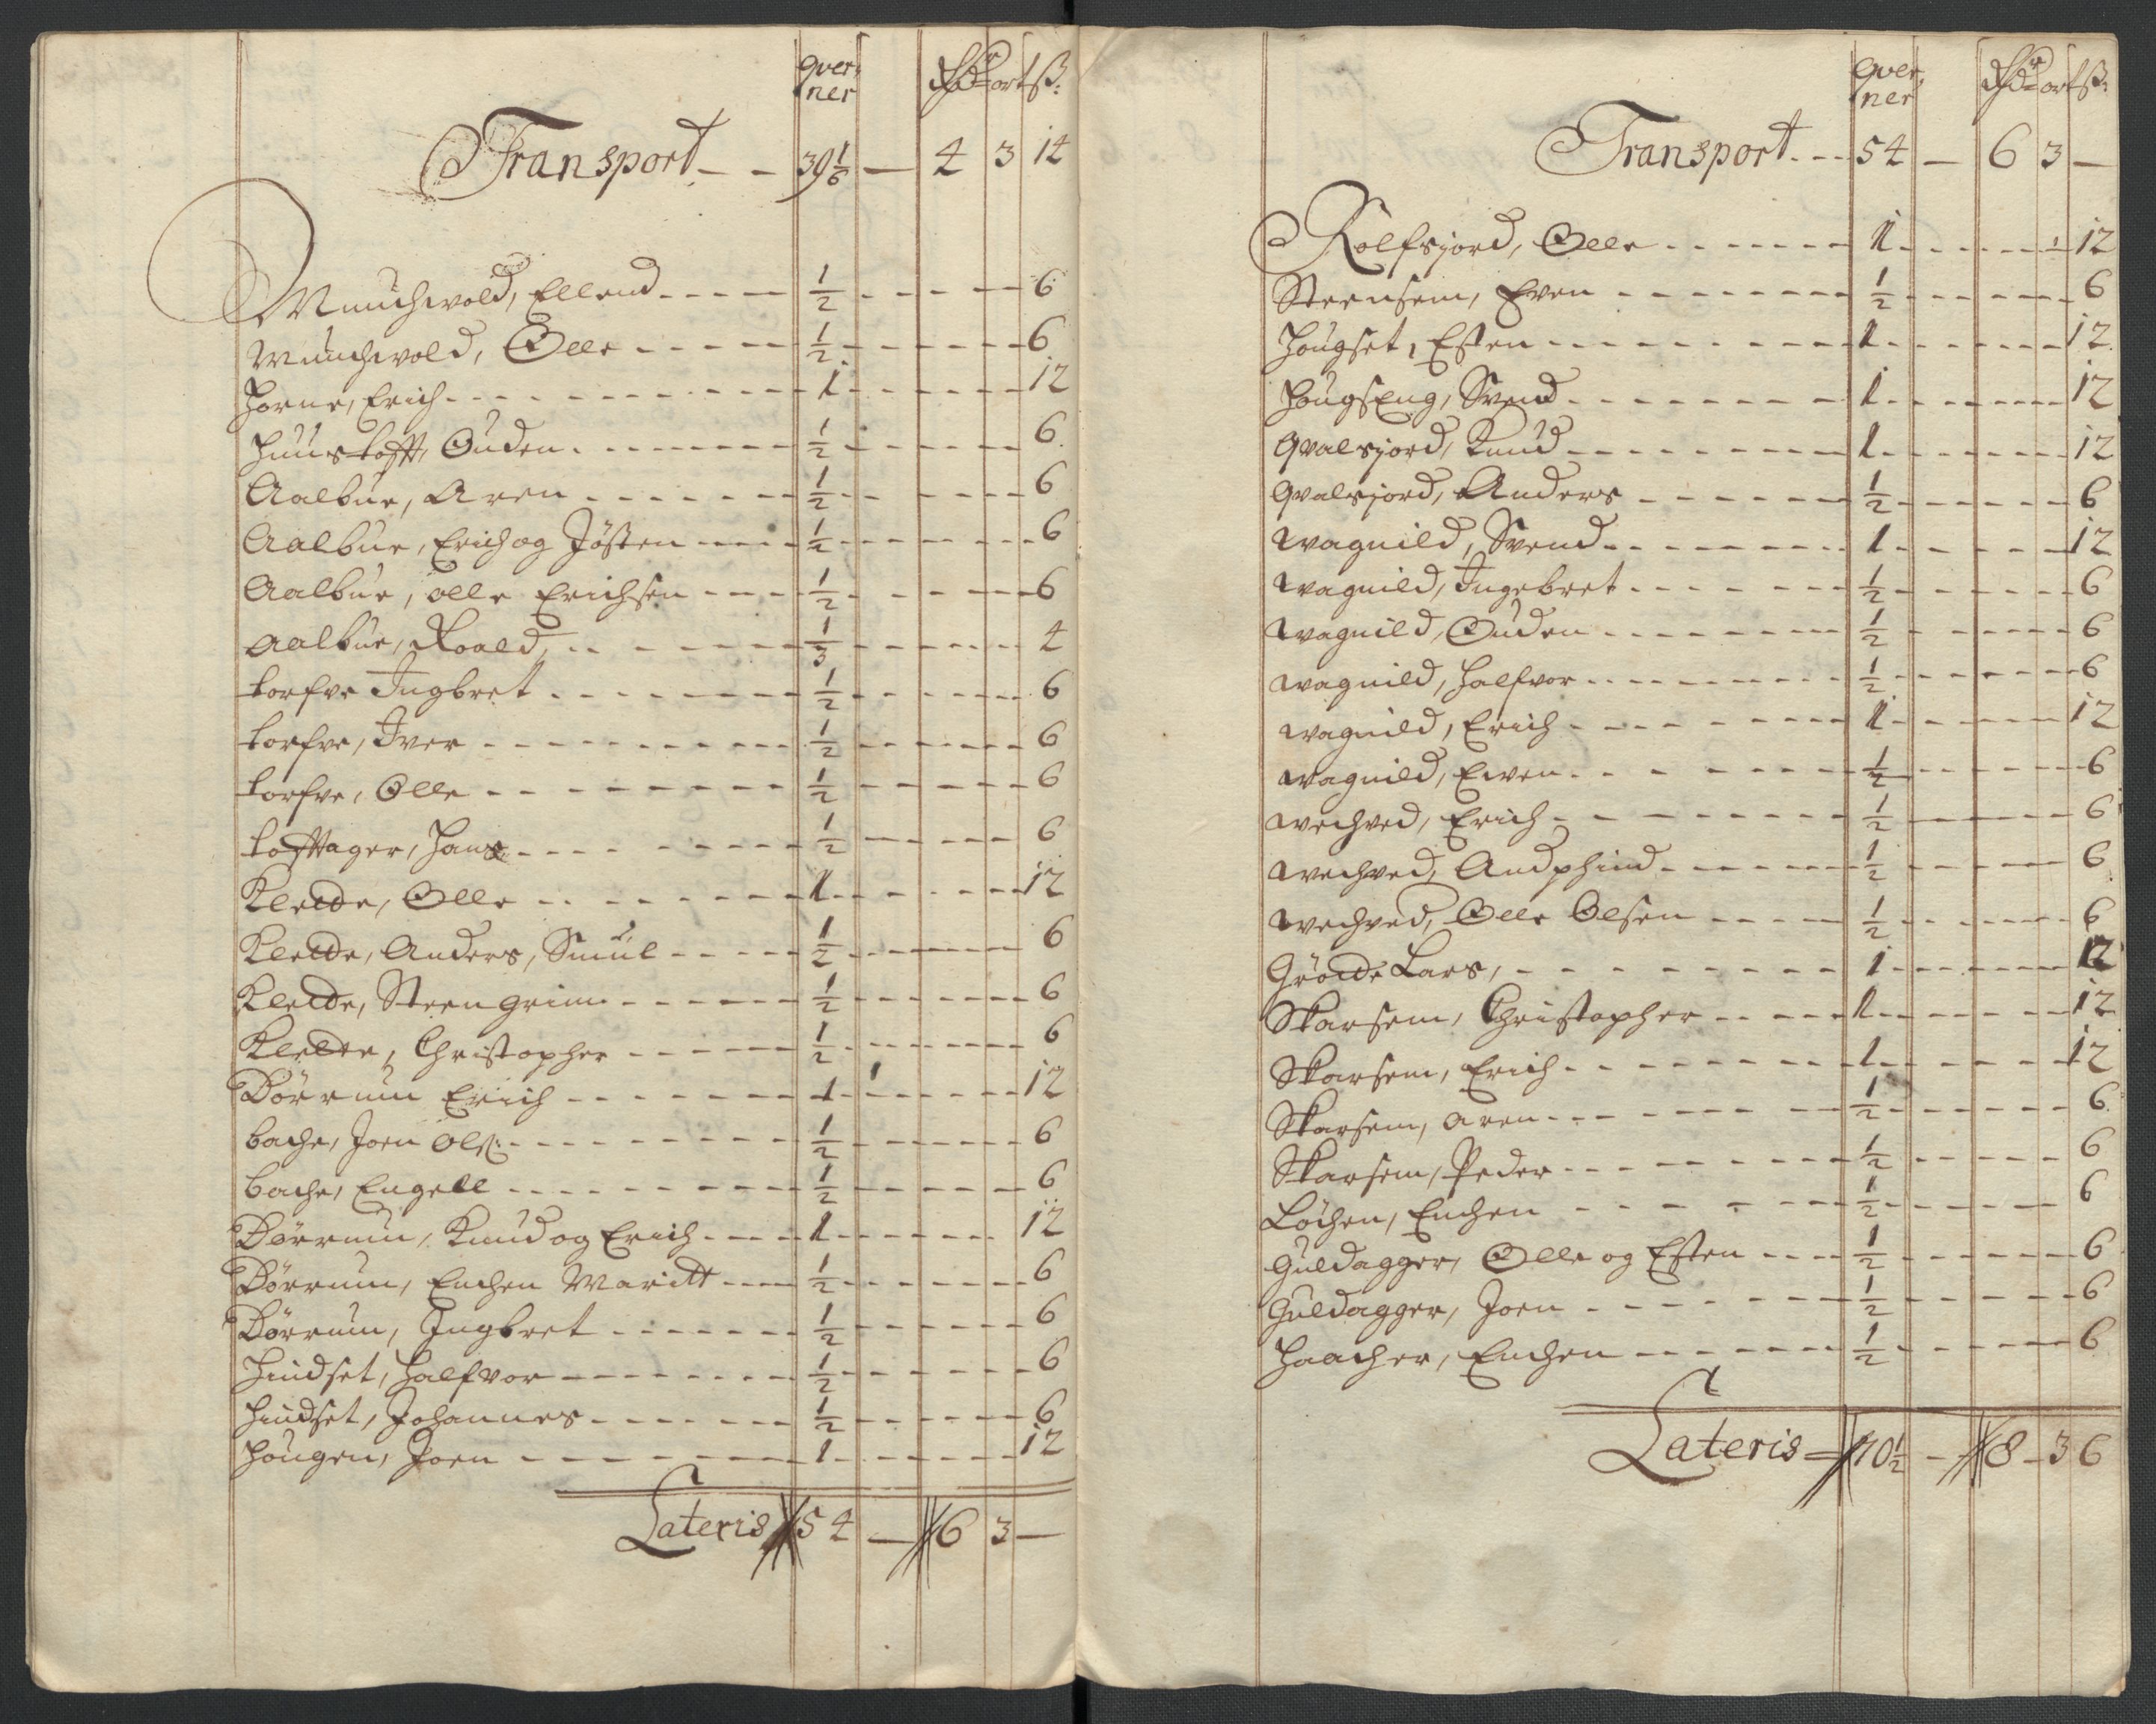 qver, ner Rdr ort ß:
Transport - - 39 1/6 - 4 3 14
Munchvold, Ellend - - - - 1/2 - - - - 6
Munchvold, Olle - - - - 1/2 - - - - 6
Horne, Erich - - - - 1 - - - - 12
Huustofft, Ouden - - - - 1/2 - - - - 6
Aalbue, Aren - - - - 1/2 - - - - 6
Aalbue, Erich og Jösten - - - - 1/2 - - - - 6
Aalbue, olle Erichsen - - - - 1/2 - - - - 6
Aalbue, Roald, - - - - 1/3 - - - - 4
torfve Ingbret - - - - 1/2 - - - - 6
torfve, Iver - - - - 1/2 - - - - 6
torfve, Olle - - - - 1/2 - - - - 6
tofftager, Hans - - - - 1/2 - - - - 6
Kletde, Olle - - - - 1 - - - - 12
Kletde, Anders, Smul - - - - 1/2 - - - - 6
Kletde, Steengrim - - - - 1/2 - - - - 6
Kletde, Christopher - - - - 1/2 - - - - 6
Dörrum Erich - - - - 1 - - - - 12
bache, Joen Ols: - - - - 1/2 - - - - 6
bache, Engell - - - - 1/2 - - - - 6
Dörrum, Knud og Erich - - - - 1 - - - - 12
Dörrum, Enchen Maritt - - - - 1/2 - - - - 6
Dörrum, Ingbret - - - - 1/2 - - - - 6
Hindset, Halfvor - - - - 1/2 - - - - 6
Hindset, Johannes - - - - 1/2 - - - - 6
Hougen, Joen - - - - 1 - - - - 12
Lateris 54 - 6 3 -
qver, ner Rdr ort ß:
Transport - - - 54 - 6 3 -
Rolfsjord, Olle - - - - 1 - - - - 12
Steensem, Even - - - - 1/2 - - - - 6
Hougset, Esten - - - - 1 - - - - 12
Hougseng, Svend - - - - 1 - - - - 12
Qvalsjord, Knud - - - - 1 - - - - 12
Qvalsjord, Anders - - - - 1/2 - - - - 6
Wagnild, Svend - - - - 1 - - - - 12
Wagnild, Ingebret - - - - 1/2 - - - - 6
Wagnild, Ouden - - - - 1/2 - - - - 6
Wagnild, Halfvor - - - - 1/2 - - - - 6
Wagnild, Erich - - - - 1 - - - - 12
Wagnild, Ewen - - - - 1/2 - - - - 6
Wechved, Erich - - - - 1/2 - - - - 6
Wechved, Andphind - - - - 1/2 - - - - 6
Wechved, Olle Olsen - - - - 1/2 - - - - 6
Gröede Lars, - - - - 1 - - - - 12
Skarsem, Christopher - - - - 1 - - - - 12
Skarsem, Erich - - - - 1 - - - - 12
Skarsem, Aren - - - - 1/2 - - - - 6
Skarsem, Peder - - - - 1/2 - - - - 6
Löchen, Enchen - - - - 1/2 - - - - 6
Guldagger, Olle og Esten - - - - 1/2 - - - - 6
Guldagger, Joen - - - - 1/2 - - - - 6
Haacher, Enchen - - - - 1/2 - - - - 6
Lateris 70 1/2 - 8 - 3 6